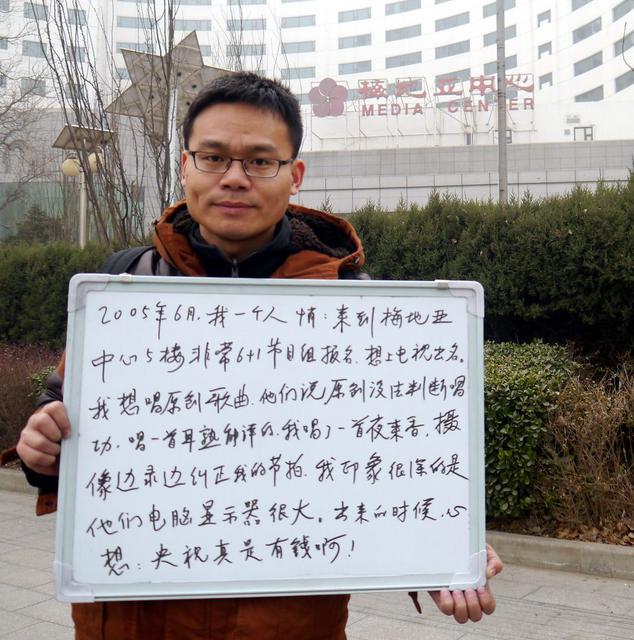 梅地亚中心
MEDIA CENTER
2005年6月,我一个人悄: 来到梅地亚
中心5楼非常6+1节目组报名.想上电视出名。
我想唱原创歌曲.他们说原创没法判断唱
功.唱一首耳熟能详的.我唱了一首夜来香.摄
像边录边纠正我的节拍.我印象很深的是
他们电脑显示器很大。出来的时候,心
想:央视真是有钱啊!